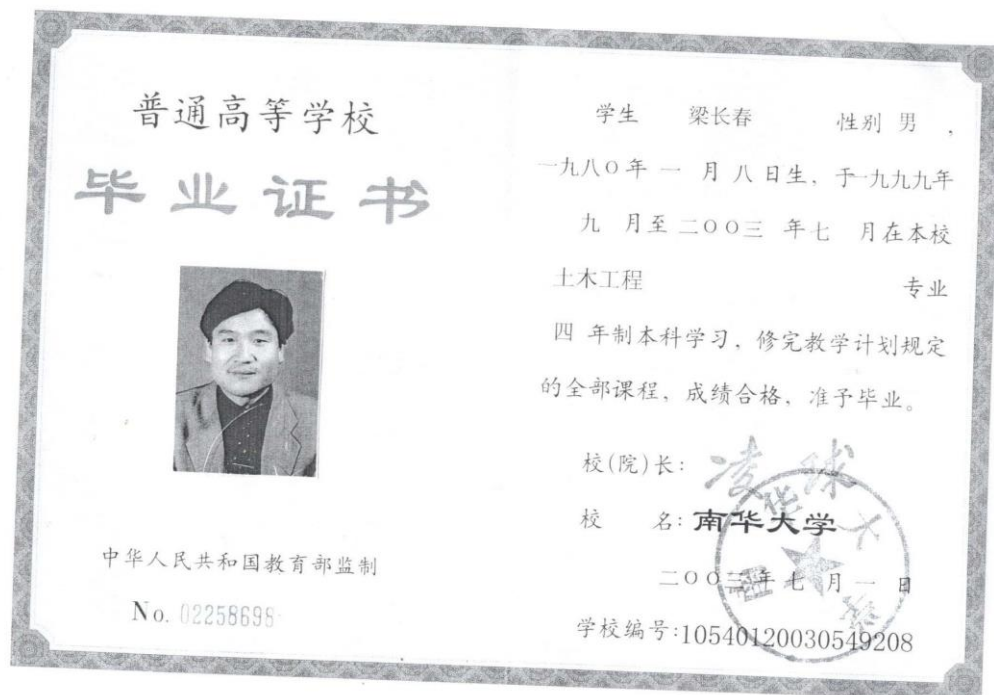 普通高等学校
毕业证书
中华人民共和国教育部监制
No. 02258698
学生 梁长春 性别 男 ,
一九八〇年 一 月 八 日生, 于一九九九年
九 月至 二〇〇三 年 七 月在本校
土木工程 专业
四 年制本科学习, 修完教学计划规定
的全部课程, 成绩合格, 准予毕业。
校(院)长: 凌球
校 名: 南华大学
二〇〇三年 七 月 一 日
学校编号:10540120030549208
南华大学